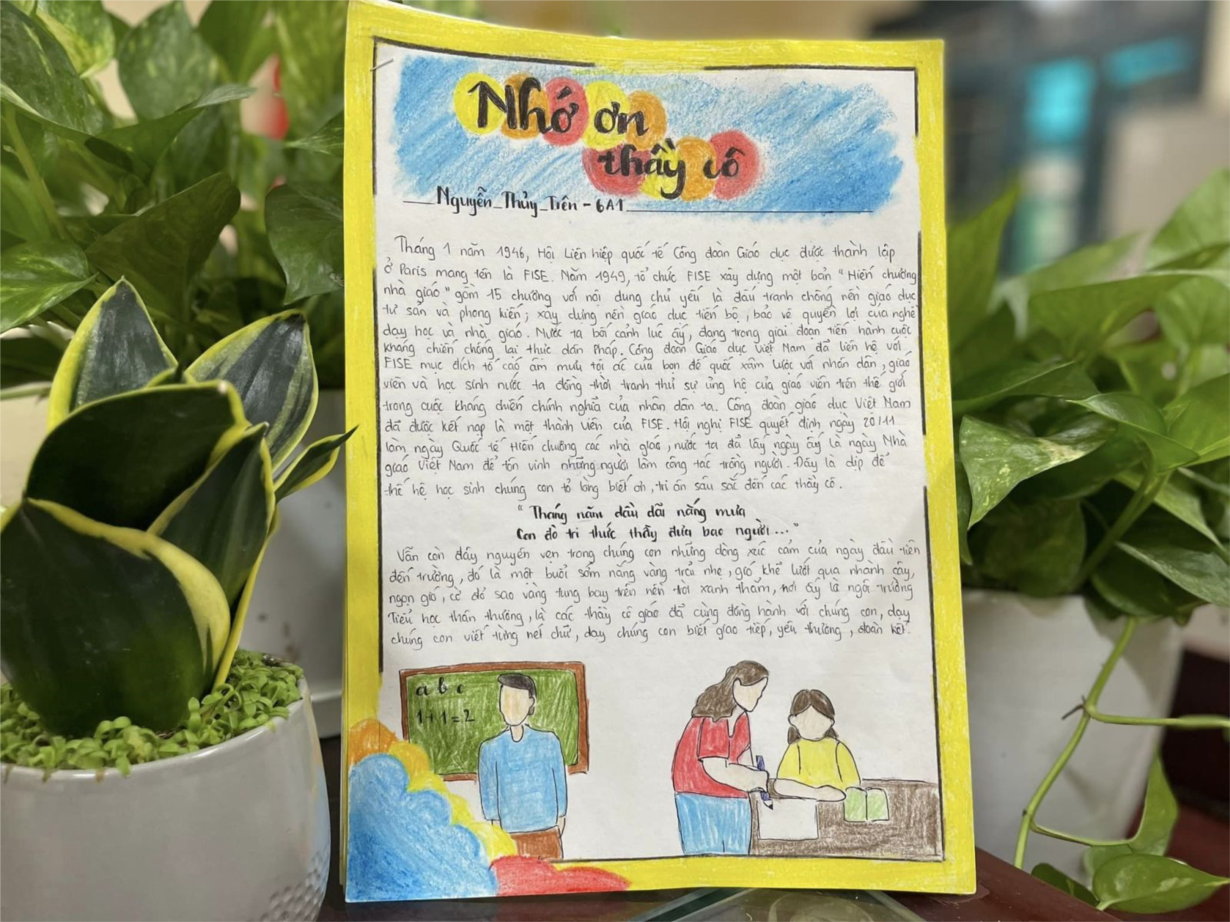 Nhớ ơn
thầy cô
Nguyễn Thủy Tiên - 6A1
Tháng 1 năm 1946, Hội Liên hiệp quốc tế Công đoàn Giáo dục được thành lập
ở Paris mang tên là FISE. Năm 1949, tổ chức FISE xây dựng một bản "Hiến chương
nhà giáo" gồm 15 chương với nội dung chủ yếu là đấu tranh chống nền giáo dục
tư sản và phong kiến; xây dựng nền giáo dục tiến bộ, bảo vệ quyền lợi của nghề
dạy học và nhà giáo. Nước ta bối cảnh lúc ấy, đang trong giai đoạn tiến hành cuộc
kháng chiến chống lại thực dân Pháp. Công đoàn Giáo dục Việt Nam đã liên hệ với
FISE mục đích tố cáo âm mưu tội ác của bọn đế quốc xâm lược với nhân dân, giáo
viên và học sinh nước ta đồng thời tranh thủ sự ủng hộ của giáo viên trên thế giới
trong cuộc kháng chiến chính nghĩa của nhân dân ta. Công đoàn giáo dục Việt Nam
đã được kết nạp là một thành viên của FISE. Hội nghị FISE quyết định ngày 20/11
làm ngày Quốc tế Hiến chương các nhà giáo, nước ta đã lấy ngày ấy là ngày Nhà
giáo Việt Nam để tôn vinh những người làm công tác trồng người. Đây là dịp để
thế hệ học sinh chúng con tỏ lòng biết ơn, tri ân sâu sắc đến các thầy cô.
"Tháng năm dầu dãi nắng mưa
Con đò tri thức thầy đưa bao người..."
Vẫn còn đây nguyên vẹn trong chúng con những dòng xúc cảm của ngày đầu tiên
đến trường, đó là một buổi sớm nắng vàng trìu nhẹ, gió khẽ lướt qua nhành cây,
ngọn gió, cờ đỏ sao vàng tung bay trên nền trời xanh thắm, nơi ấy là ngôi trường
Tiểu học thân thương, là các thầy cô giáo đã cùng đồng hành với chúng con, dạy
chúng con viết từng nét chữ, dạy chúng con biết giao tiếp, yêu thương, đoàn kết.
a b c
1+1=2